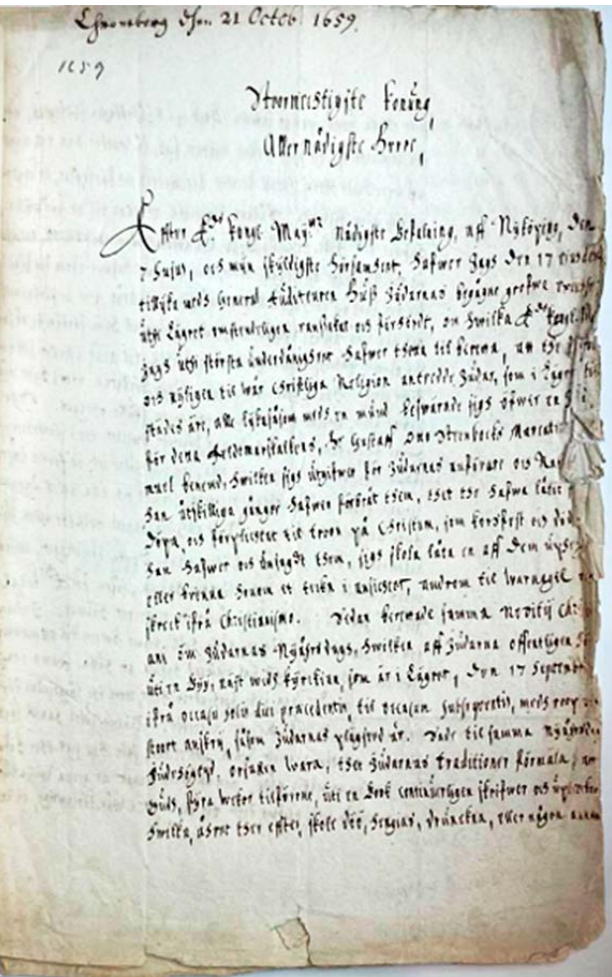 Chroneborg den 21 Octob. 1659.
1659
Stoormechtigste Konung,
Aller nådigste Herre,
Effter Kongl. May:tz nådigste Befalning, aff Nyköping, den
7 hujus, och min skyldigste hörsamhet, hafwer jagh den 17
tillijka medh General Auditeuren Judarnas
uthi Lägret omständeligen ransakat och förhördt, om hwilka
jagh uthi största underdånighet hafwer thetta til beretta, att the
och nyligen til wår Christliga Religion antredde Judar, som i Lägret
stadde äre, alle lijkasåsom medh en mund beswärade sigh öfwer en
för denna Feldtmarskalkens, Hr Gustaff Otto Steenbocks
muel benemd, hwilken sigh uthgifwer för Judarnas anförare och
han åthskilliga gånger hafwer förbråt them, thet the hafwa låtit
döpa, och förplichtat til troon på Christum, som korsfäst och död
han hafwer och undsagdt them, sigh skola låta en aff dem
eller brenna honom et teckn i ansichtet, androm til warnagel
skreck ifrå Christianismo. Sedan berettade samma Novitij
ani om Judarnas Nyåhrsdagh, hwilken aff Judarna offentligen
uti en By, näst widh Kyrkian, som är i Lägret, den 17 Septemb
ifrå occasu solis diei præcedentis, til occasum subsequentis, medh
stoort anskrij, såsom Judarnas plägsed är. Sade til samma Nyåhrs
Judehögtijd, orsaken wara, thet Judarnas traditioner förmäla, att
Gudh, fyra weckor tilförne, uti en Book continuerligen skrifwer och
hwilka, åhret ther effter, skole döö, hengias, drunckna, eller någon annan